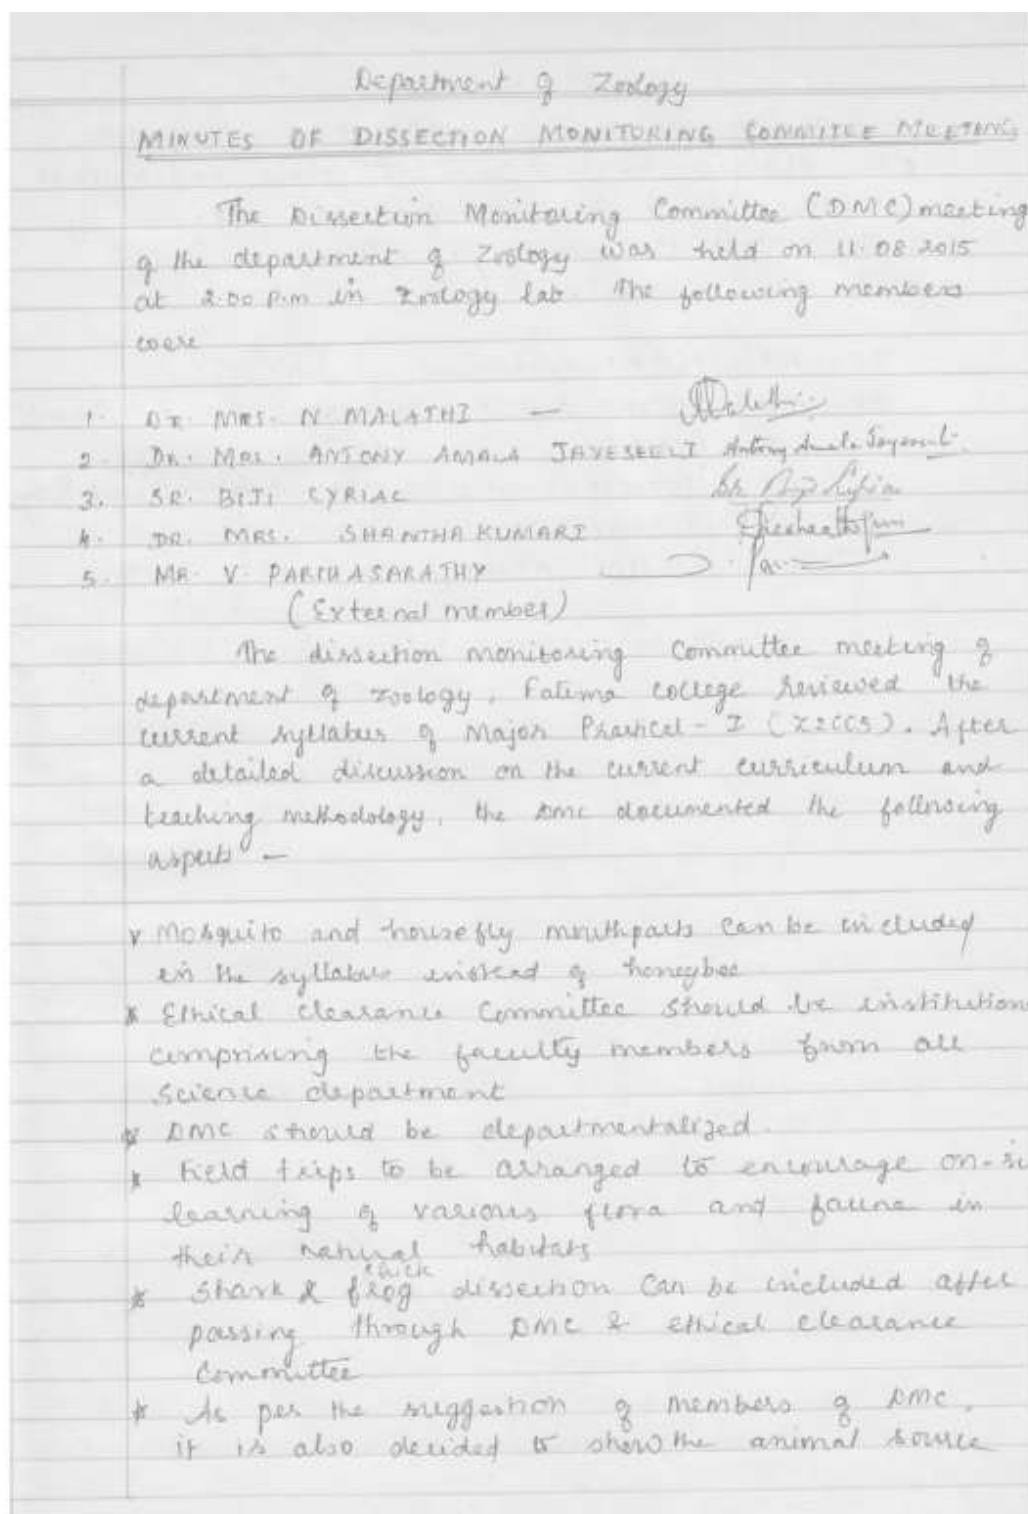 Department of Zoology
MINUTES OF DISSECTION MONITORING COMMITEE MEETING
The Dissection Monitoring Committee (DMC) meeting
of the department of Zoology was held on 11.08.2015
at 2.00 p.m in Zoology lab. The following members
were
1. DR. MRS. N. MALATHI —
2. DR. MRS. ANTONY AMALA JAYESEELI Antony Amala
3. SR. BIJI CYRIAC
4. DR. MRS. SHANTHA KUMARI
5. MR. V. PARTHASARATHY
(External member)
The dissection monitoring Committee meeting of
department of zoology, Fatima College reviewed the
current syllabus of Major Practical - I (Z2CC5). After
a detailed discussion on the current curriculum and
teaching methodology, the DMC documented the following
aspects —
* Mosquito and housefly mouthparts can be included
in the syllabus instead of honeybee
* Ethical clearance Committee should be institution
comprising the faculty members from all
science department
* DMC should be departmentalized.
* Field trips to be arranged to encourage on-si
learning of various flora and fauna in
their natural habitats
* Shark & frog dissection can be included after
passing through DMC & ethical clearance
Committee
* As per the suggestion of members of DMC,
it is also decided to show the animal source